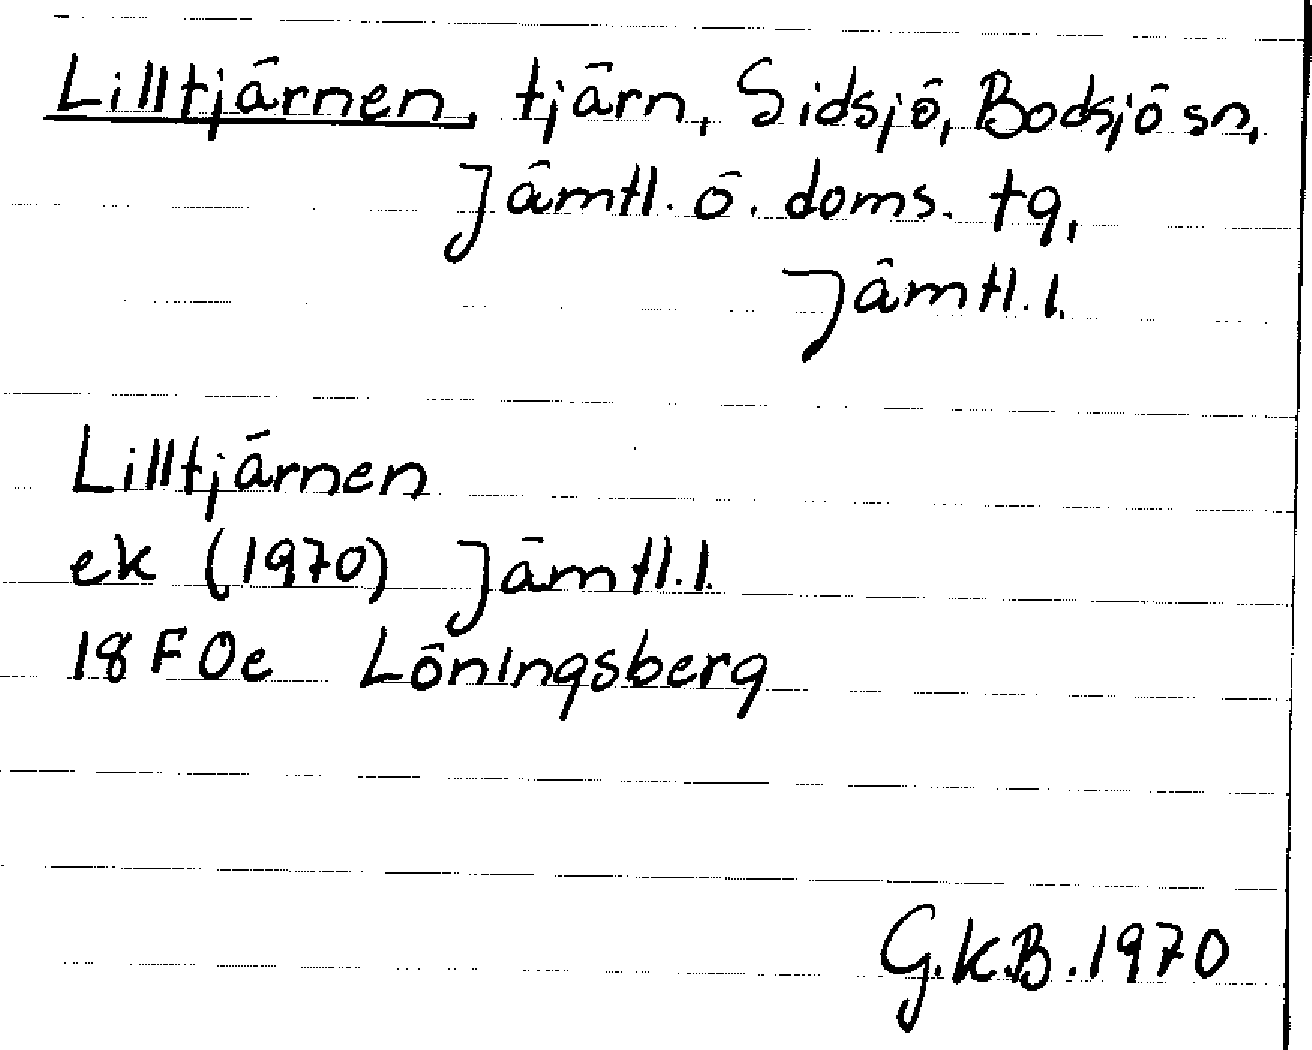 Lilltjärnen, tjärn, Sidsjö, Bodsjö sn,
Jämtl. ö. doms. tg,
Jämtl. l.
Lilltjärnen
ek (1970) Jämtl. l.
18 F 0e Löningsberg
G.K.B. 1970